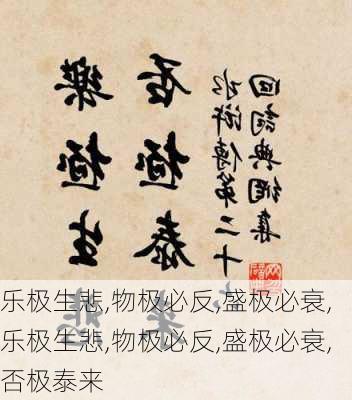 樂極生悲
否極泰來
水滸傳第二十
回詞典網集
乐极生悲,物极必反,盛极必衰,
乐极生悲,物极必反,盛极必衰,
否极泰来